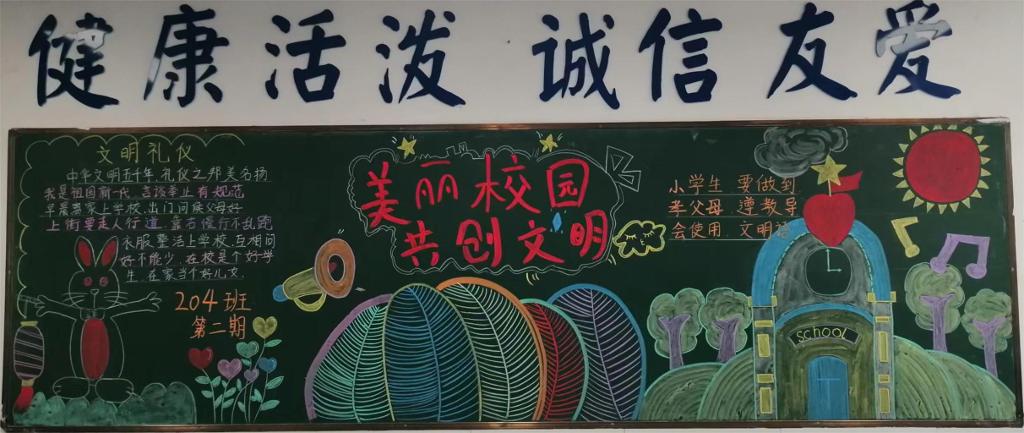 健康活泼 诚信友爱
文明礼仪
中华文明五千年 礼仪之邦美名扬
我是祖国新一代 言谈举止有规范
早晨离家上学校 出门问候父母好
上街要走人行道 靠右慢行不乱跑
衣服整洁上学校 互相问
好不能少 在校是个好学
生 在家当个好儿女.
204班
第二期
美丽校园
共创文明
小学生 要做到
孝父母 遵教导
会使用 文明
school